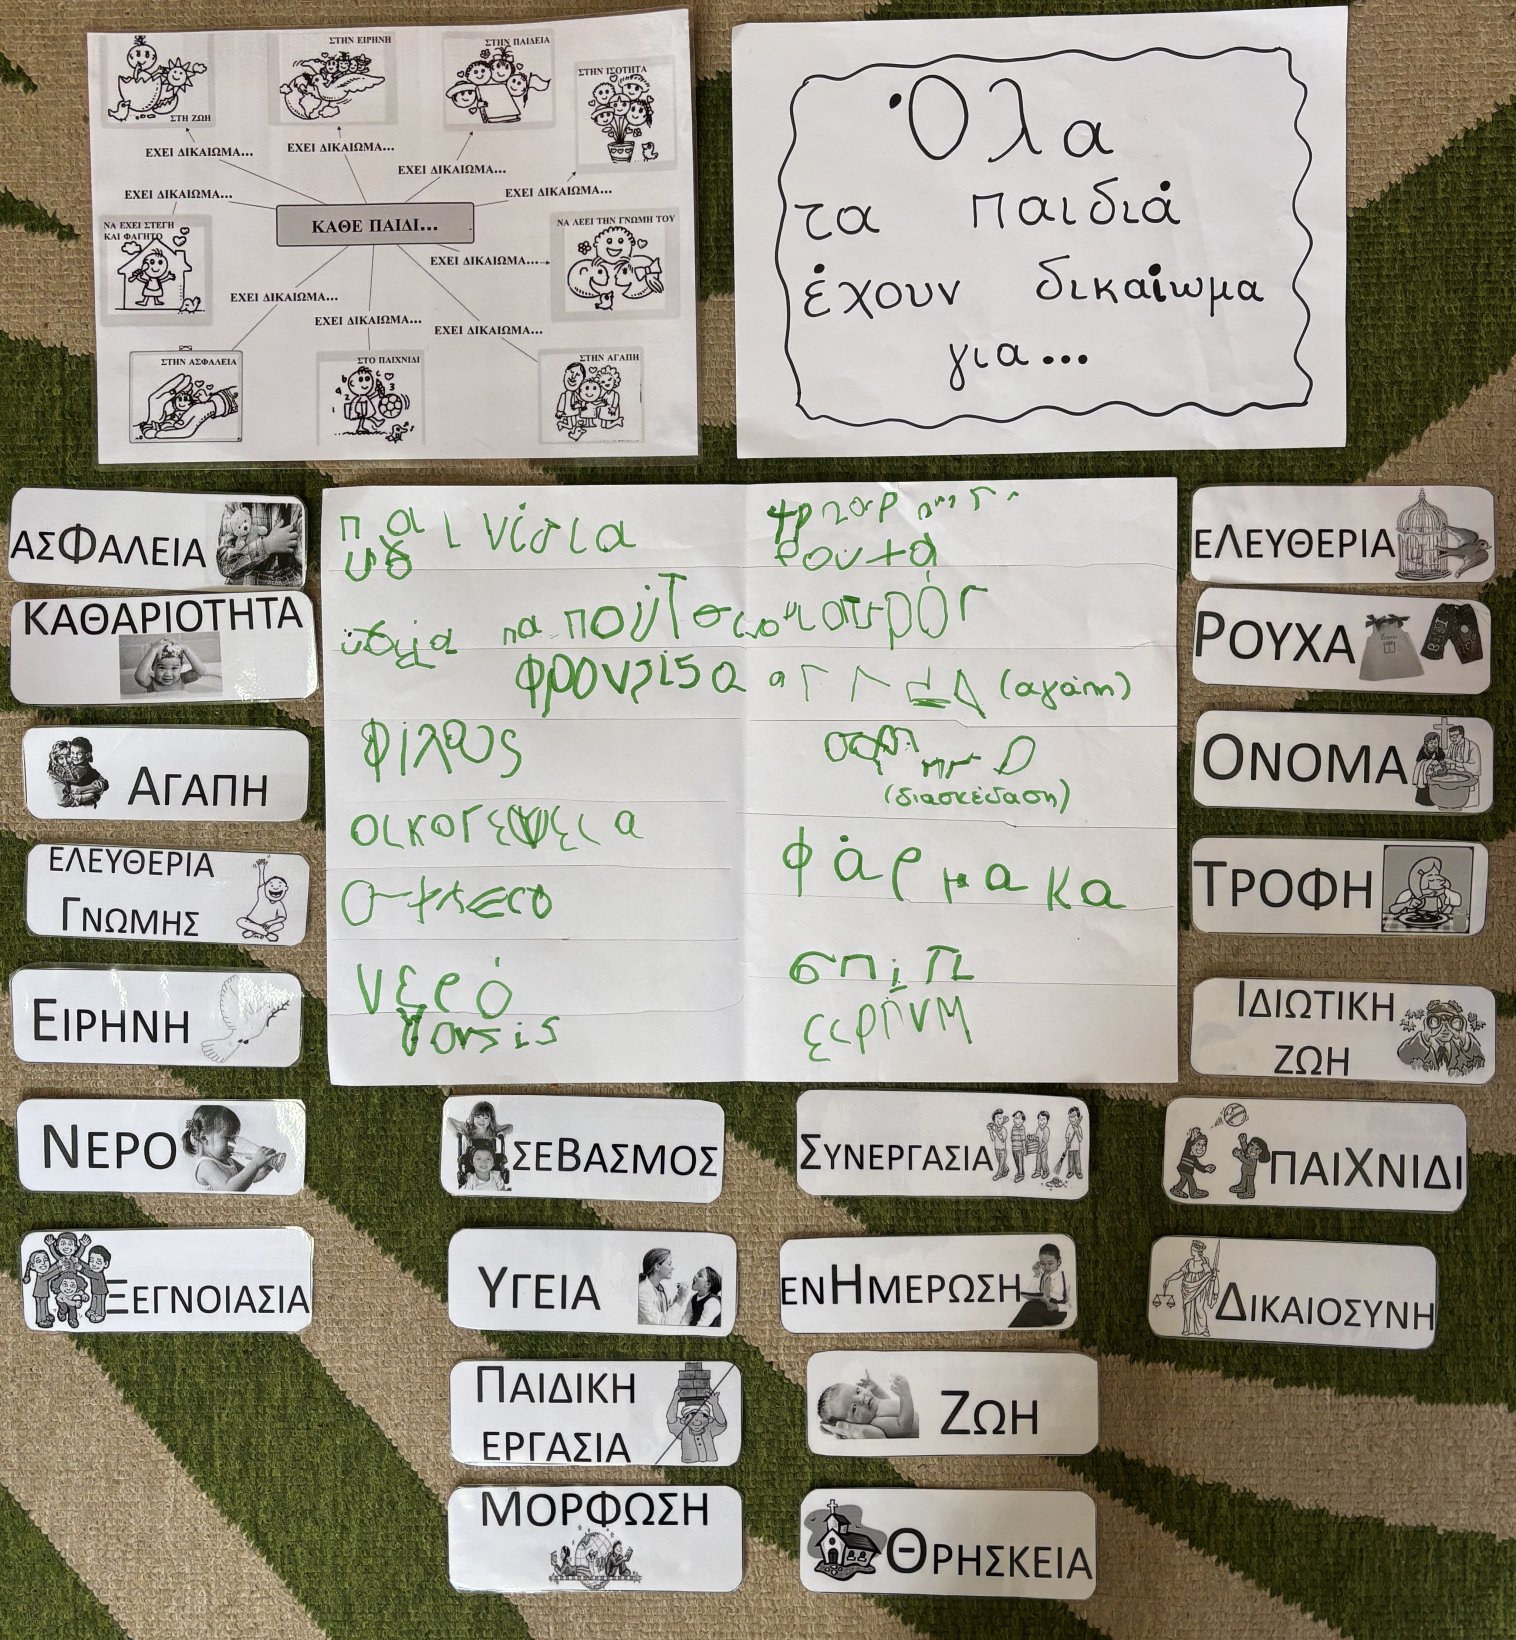 ΣΤΗ ΖΩΗ
ΣΤΗΝ ΕΙΡΗΝΗ
ΣΤΗΝ ΠΑΙΔΕΙΑ
ΣΤΗΝ ΙΣΟΤΗΤΑ
ΕΧΕΙ ΔΙΚΑΙΩΜΑ...
ΕΧΕΙ ΔΙΚΑΙΩΜΑ...
ΕΧΕΙ ΔΙΚΑΙΩΜΑ...
ΕΧΕΙ ΔΙΚΑΙΩΜΑ...
ΕΧΕΙ ΔΙΚΑΙΩΜΑ...
ΚΑΘΕ ΠΑΙΔΙ...
ΝΑ ΕΧΕΙ ΣΤΕΓΗ
ΚΑΙ ΦΑΓΗΤΟ
ΝΑ ΛΕΕΙ ΤΗΝ ΓΝΩΜΗ ΤΟΥ
ΕΧΕΙ ΔΙΚΑΙΩΜΑ...
ΕΧΕΙ ΔΙΚΑΙΩΜΑ...
ΕΧΕΙ ΔΙΚΑΙΩΜΑ...
ΕΧΕΙ ΔΙΚΑΙΩΜΑ...
ΣΤΗΝ ΑΣΦΑΛΕΙΑ
ΣΤΟ ΠΑΙΧΝΙΔΙ
ΣΤΗΝ ΑΓΑΠΗ
Όλα
τα παιδιά
έχουν δικαίωμα
για...
ΑΣΦΑΛΕΙΑ
ΚΑΘΑΡΙΟΤΗΤΑ
ΑΓΑΠΗ
ΕΛΕΥΘΕΡΙΑ
ΓΝΩΜΗΣ
ΕΙΡΗΝΗ
ΝΕΡΟ
ΞΕΓΝΟΙΑΣΙΑ
φρονζίδα
φίλους
νερό
(αγάπη)
(διασκέδαση)
φάρμακα
σπίτι
ΕΛΕΥΘΕΡΙΑ
ΡΟΥΧΑ
ΟΝΟΜΑ
ΤΡΟΦΗ
ΙΔΙΩΤΙΚΗ
ΖΩΗ
ΣΕΒΑΣΜΟΣ
ΣΥΝΕΡΓΑΣΙΑ
ΠΑΙΧΝΙΔΙ
ΥΓΕΙΑ
ΕΝΗΜΕΡΩΣΗ
ΔΙΚΑΙΟΣΥΝΗ
ΠΑΙΔΙΚΗ
ΕΡΓΑΣΙΑ
ΖΩΗ
ΜΟΡΦΩΣΗ
ΘΡΗΣΚΕΙΑ